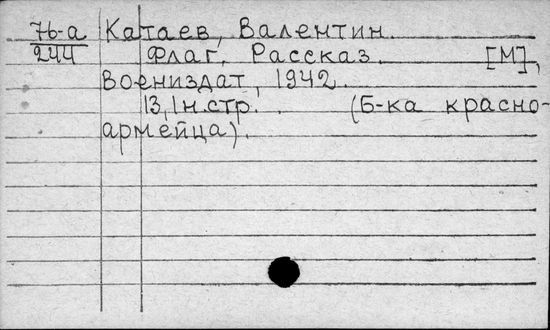 76-а Катаев, Валентин.
244 Флаг. Рассказ. [М],
Воениздат, 1942.
13, 1 н. стр. (Б-ка красно-
армейца).